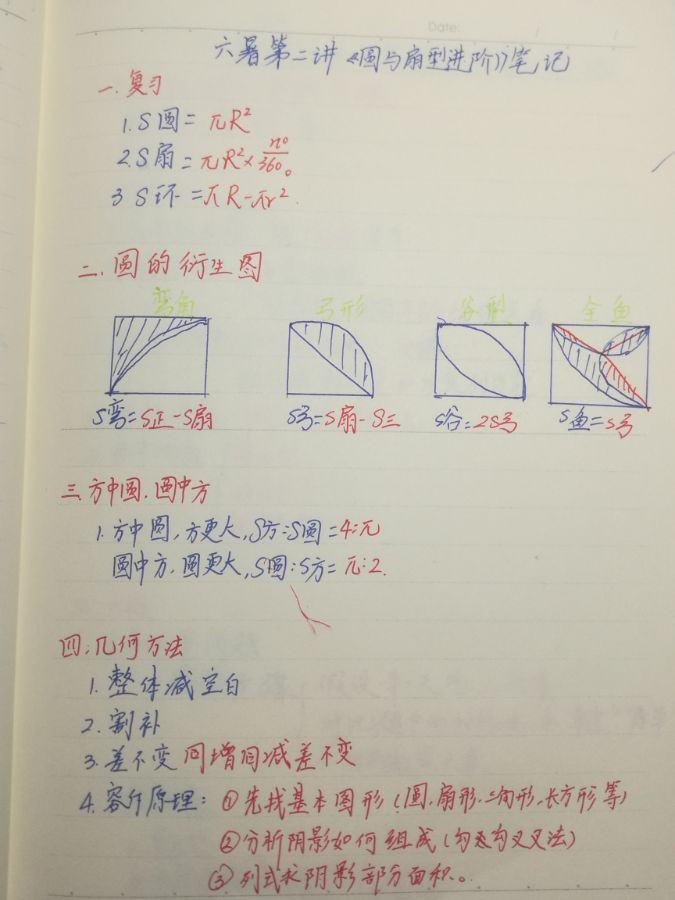 Date:
六暑第二讲《圆与扇型进阶》笔记
一.复习
1.S圆=πR²
2.S扇=πR²×n°/360°
3 S环=πR-πr².
二.圆的衍生图
弯角 弓形 谷型 全鱼
S弯=S正-S扇 S弓=S扇-S三 S谷=2S弓 S鱼=S弓
三.方中圆.圆中方
1.方中圆,方更大,S方:S圆=4:π
圆中方.圆更大,S圆:S方=π:2.
四:几何方法
1.整体减空白
2.割补
3.差不变 同增同减差不变
4.容斥原理:①先找基本图形(圆.扇形.三角形.长方形等)
②分析阴影如何组成(勾勾叉叉法)
③列式求阴影部分面积。